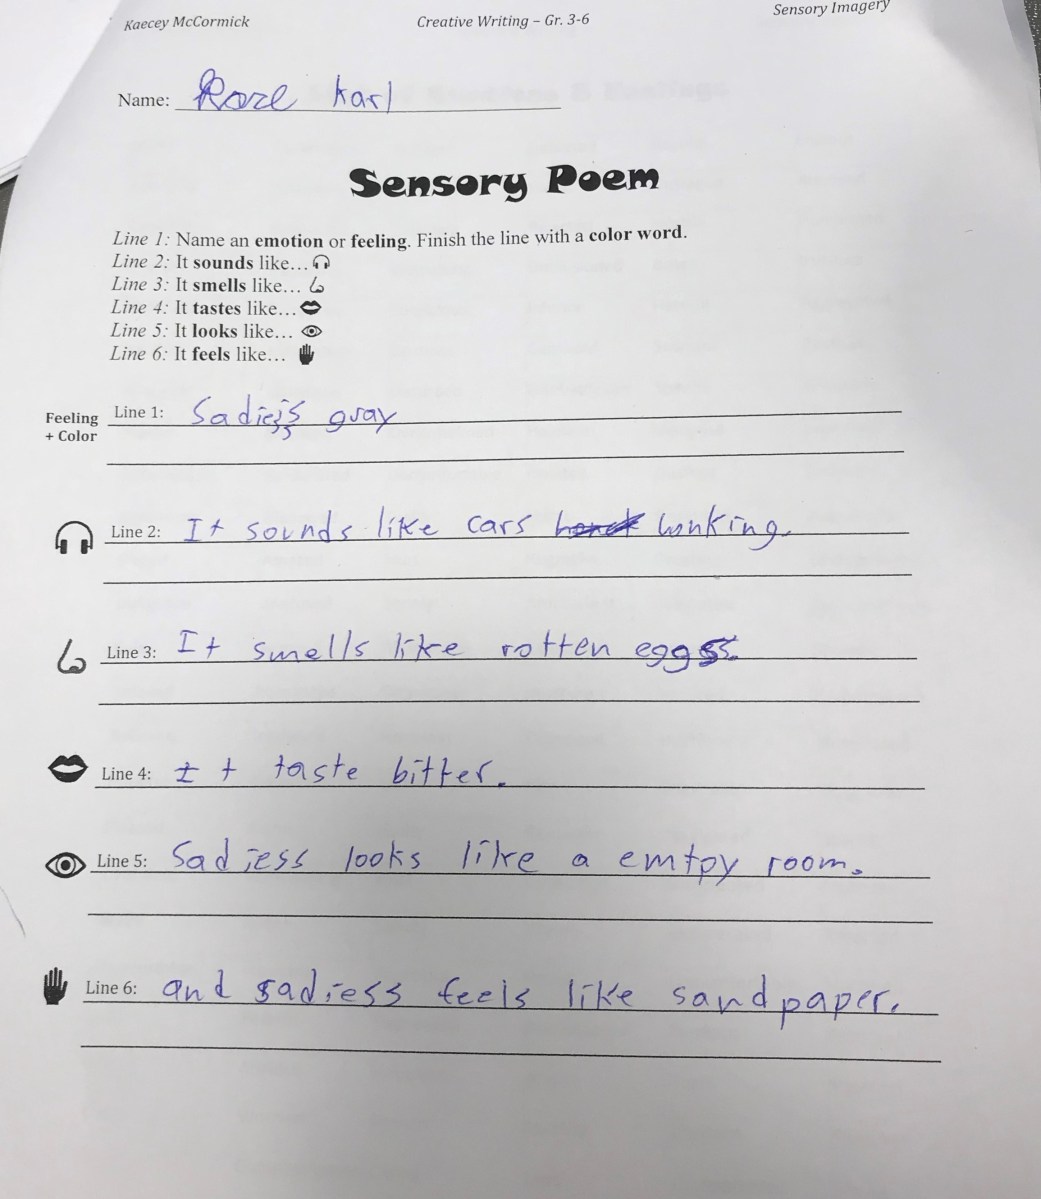 Kaecey McCormick Creative Writing – Gr. 3-6 Sensory Imagery
Name: karl
Sensory Poem
Line 1: Name an emotion or feeling. Finish the line with a color word.
Line 2: It sounds like...
Line 3: It smells like...
Line 4: It tastes like...
Line 5: It looks like...
Line 6: It feels like...
Feeling + Color
Line 1: gray
Line 2: It sounds like cars honking.
Line 3: It smells like rotten eggs.
Line 4: It taste bitter.
Line 5: Sadiess looks like a emtpy room.
Line 6: and sadiess feels like sandpaper.